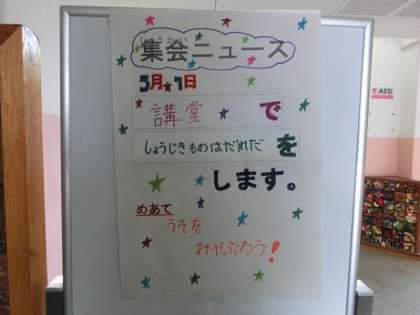 しゅうかい
集会ニュース
5月★1日
講堂で
しょうじきものはだれだを
します。
めあて
うそを
みやぶろう!
AED